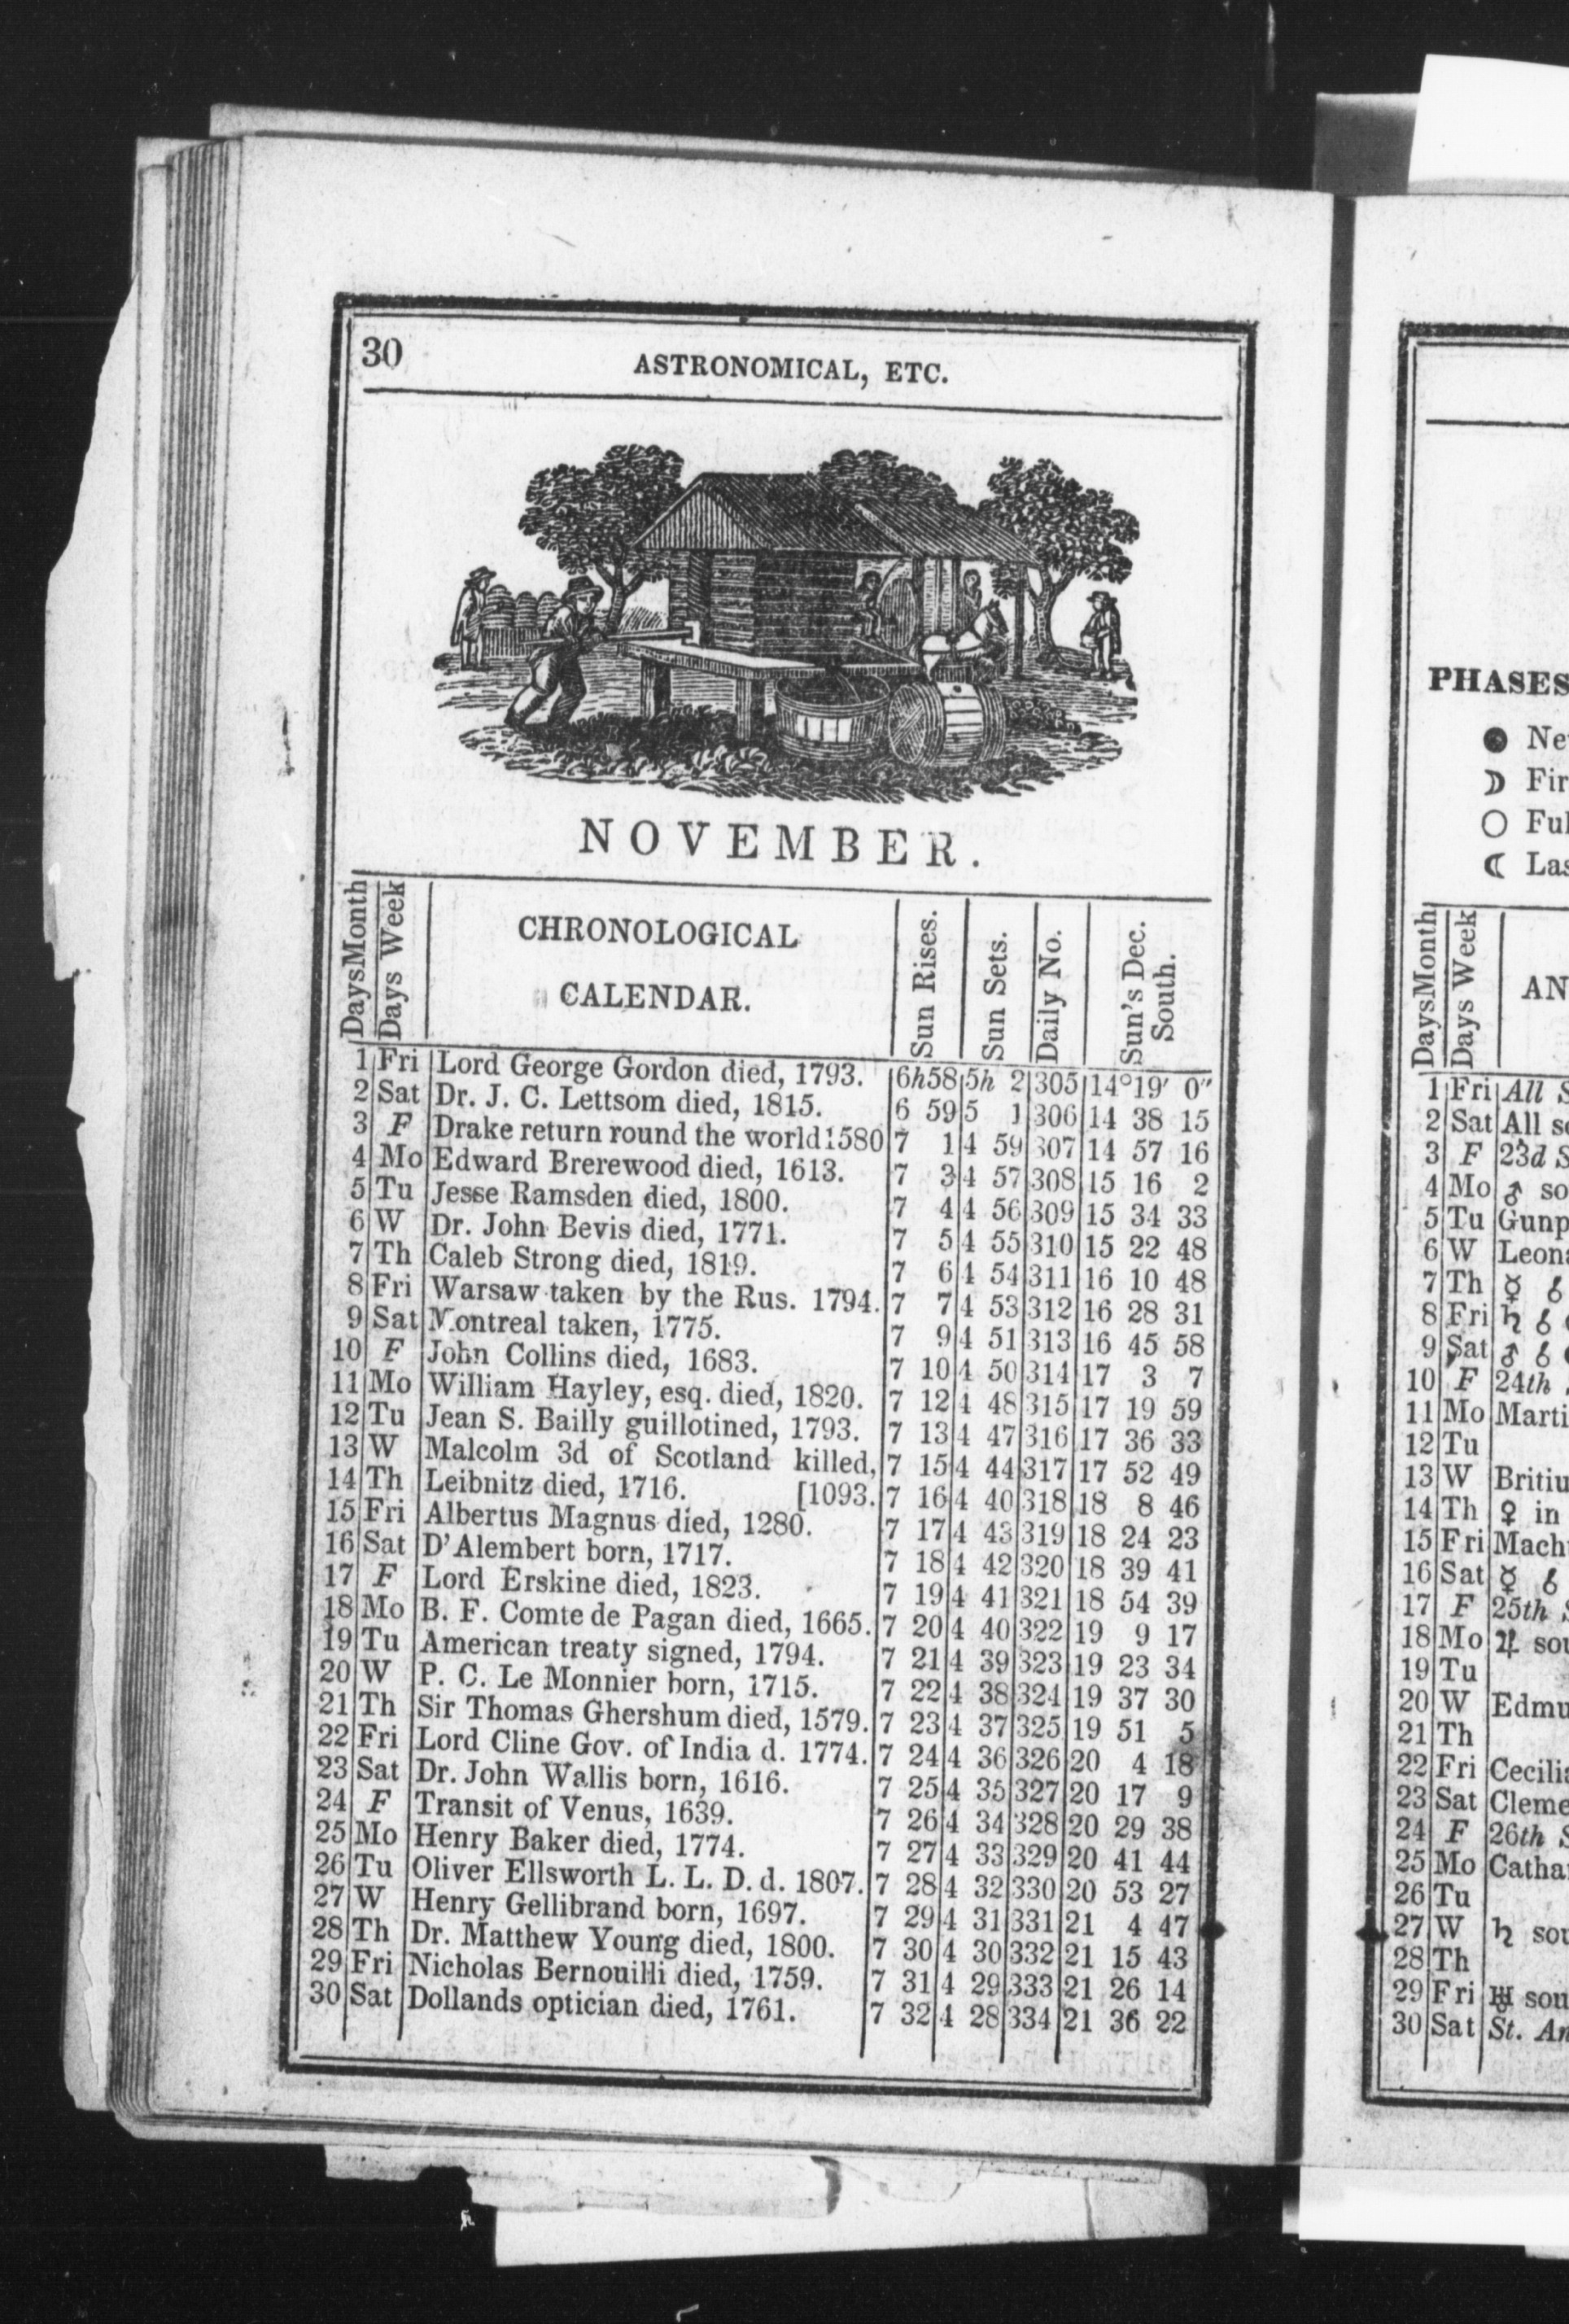 30
ASTRONOMICAL, ETC.
NOVEMBER.
DaysMonth Days Week CHRONOLOGICAL CALENDAR. Sun Rises. Sun Sets. Daily No. Sun's Dec. South.
1 Fri Lord George Gordon died, 1793. 6h58 5h 2 305 14°19' 0"
2 Sat Dr. J. C. Lettsom died, 1815. 6 59 5 1 306 14 38 15
3 F Drake return round the world 1580 7 1 4 59 307 14 57 16
4 Mo Edward Brerewood died, 1613. 7 3 4 57 308 15 16 2
5 Tu Jesse Ramsden died, 1800. 7 4 4 56 309 15 34 33
6 W Dr. John Bevis died, 1771. 7 5 4 55 310 15 22 48
7 Th Caleb Strong died, 1819. 7 6 4 54 311 16 10 48
8 Fri Warsaw taken by the Rus. 1794. 7 7 4 53 312 16 28 31
9 Sat Montreal taken, 1775. 7 9 4 51 313 16 45 58
10 F John Collins died, 1683. 7 10 4 50 314 17 3 7
11 Mo William Hayley, esq. died, 1820. 7 12 4 48 315 17 19 59
12 Tu Jean S. Bailly guillotined, 1793. 7 13 4 47 316 17 36 33
13 W Malcolm 3d of Scotland killed, 7 15 4 44 317 17 52 49
14 Th Leibnitz died, 1716. [1093. 7 16 4 40 318 18 8 46
15 Fri Albertus Magnus died, 1280. 7 17 4 43 319 18 24 23
16 Sat D'Alembert born, 1717. 7 18 4 42 320 18 39 41
17 F Lord Erskine died, 1823. 7 19 4 41 321 18 54 39
18 Mo B. F. Comte de Pagan died, 1665. 7 20 4 40 322 19 9 17
19 Tu American treaty signed, 1794. 7 21 4 39 323 19 23 34
20 W P. C. Le Monnier born, 1715. 7 22 4 38 324 19 37 30
21 Th Sir Thomas Ghershum died, 1579. 7 23 4 37 325 19 51 5
22 Fri Lord Cline Gov. of India d. 1774. 7 24 4 36 326 20 4 18
23 Sat Dr. John Wallis born, 1616. 7 25 4 35 327 20 17 9
24 F Transit of Venus, 1639. 7 26 4 34 328 20 29 38
25 Mo Henry Baker died, 1774. 7 27 4 33 329 20 41 44
26 Tu Oliver Ellsworth L. L. D. d. 1807. 7 28 4 32 330 20 53 27
27 W Henry Gellibrand born, 1697. 7 29 4 31 331 21 4 47
28 Th Dr. Matthew Young died, 1800. 7 30 4 30 332 21 15 43
29 Fri Nicholas Bernouilli died, 1759. 7 31 4 29 333 21 26 14
30 Sat Dollands optician died, 1761. 7 32 4 28 334 21 36 22
PHASES
● Ne
☽ Fir
○ Ful
☾ Las
DaysMonth Days Week AN
1 Fri All S
2 Sat All so
3 F 23d S
4 Mo ♂ so
5 Tu Gunp
6 W Leona
7 Th ☿ ☌
8 Fri ♄ ☌
9 Sat ♂ ☌
10 F 24th
11 Mo Marti
12 Tu
13 W Britiu
14 Th ♀ in
15 Fri Mach
16 Sat ☿ ☌
17 F 25th S
18 Mo ♃ sou
19 Tu
20 W Edmu
21 Th
22 Fri Cecilia
23 Sat Cleme
24 F 26th S
25 Mo Catha
26 Tu
27 W ♄ sou
28 Th
29 Fri ♅ sou
30 Sat St. An